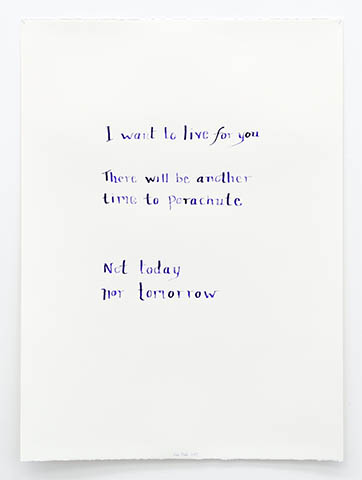 I want to live for you
There will be another
time to parachute
Not today
nor tomorrow